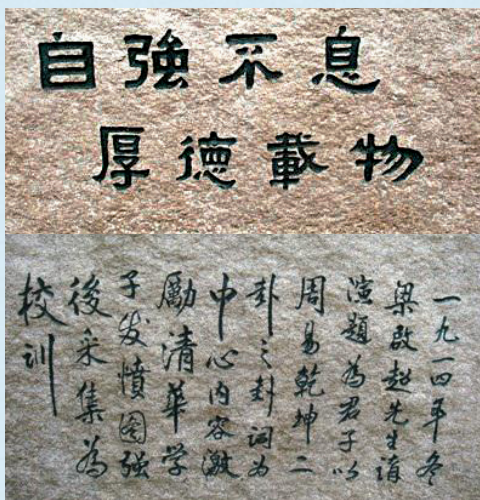 自強不息
厚德載物
一九一四年冬
梁啟超先生講
演題為君子以
周易乾坤二
卦之卦詞為
中心内容激
勵清華学
子发憤图强
後采集為
校训